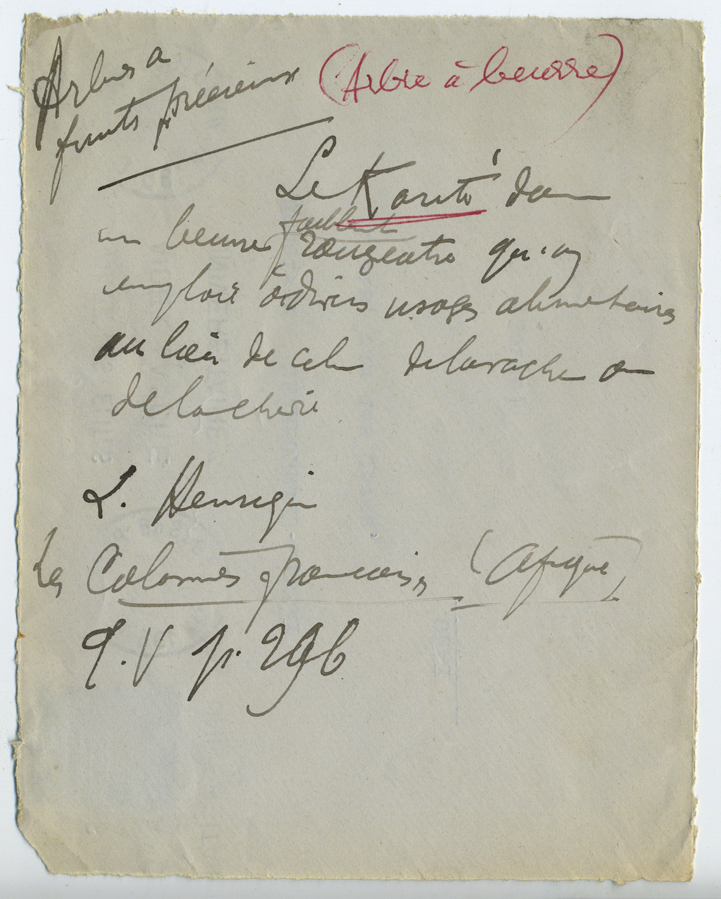 Arbres à
fruits précieux
(Arbre à beurre)
Le Karité donne
un beurre rougeatre qu'on
emploie à divers usages alimentaires
au lieu de celui de la vache ou
de la chèvre
L. Henrique
Les Colonies françaises (Afrique)
T. V p. 296